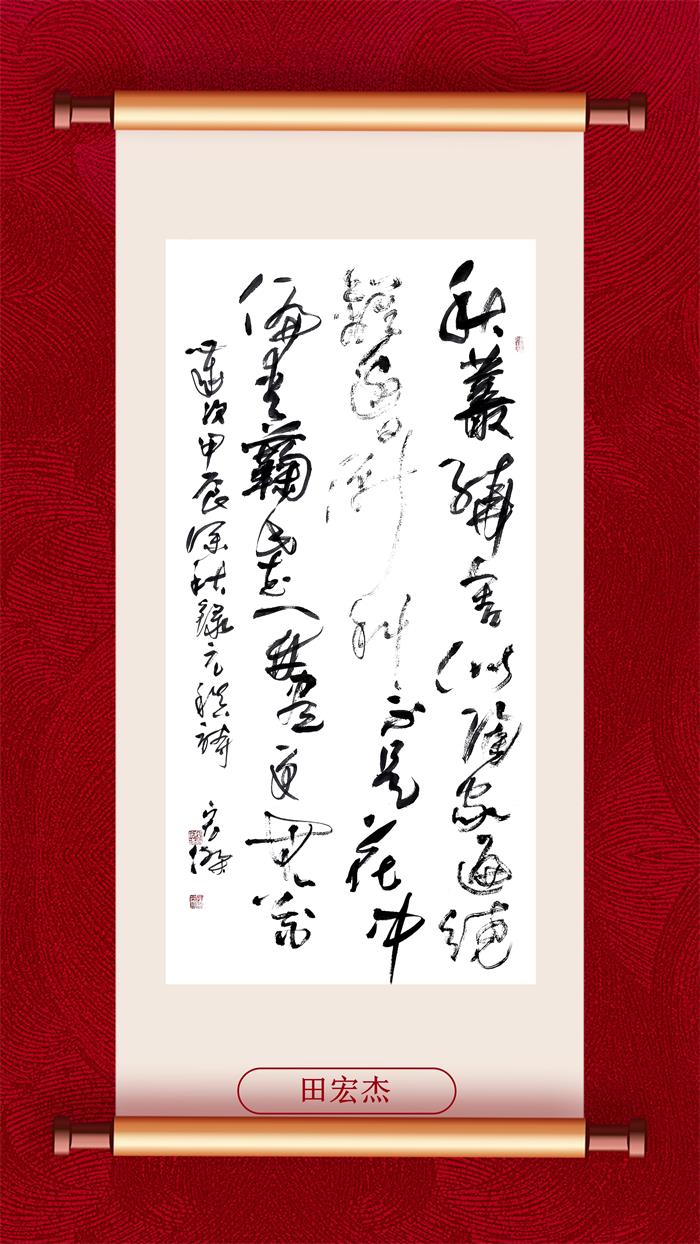 秋叢繞舍似陶家遍繞
籬邊日漸斜不是花中
偏愛蘜此花開盡更無花
歲次甲辰深秋錄元稹詩
宏傑
田宏杰